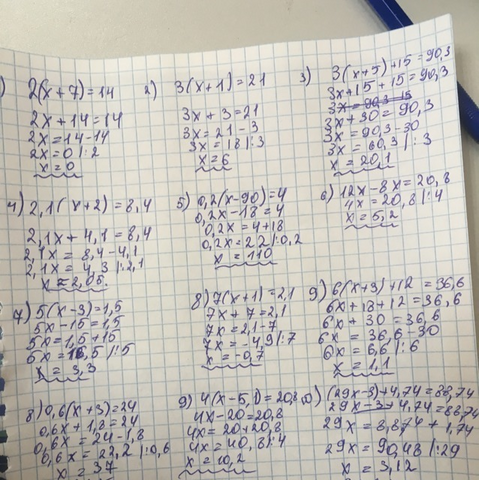 1) 2(x+7)=14
2x+14=14
2x=14-14
2x=0|:2
x=0
2) 3(x+1)=21
3x+3=21
3x=21-3
3x=18|:3
x=6
3) 3(x+5)+15=90,3
3x+15+15=90,3
3x=90,3-15
3x+30=90,3
3x=90,3-30
3x=60,3|:3
x=20,1
4) 2,1(x+2)=8,4
2,1x+4,1=8,4
2,1x=8,4-4,1
2,1x=4,3|:2,1
x=2,05
5) 0,2(x-90)=4
0,2x-18=4
0,2x=4+18
0,2x=22|:0,2
x=110
6) 12x-8x=20,8
4x=20,8|:4
x=5,2
7) 5(x-3)=1,5
5x-15=1,5
5x=1,5+15
5x=16,5|:5
x=3,3
8) 7(x+1)=2,1
7x+7=2,1
7x=2,1-7
7x=-4,9|:7
x=-0,7
9) 6(x+3)+12=36,6
6x+18+12=36,6
6x+30=36,6
6x=36,6-30
6x=6,6|:6
x=1,1
8) 0,6(x+3)=24
0,6x+1,8=24
0,6x=24-1,8
0,6x=22,2|:0,6
x=37
9) 4(x-5,1)=20,8
4x-20=20,8
4x=20+20,8
4x=40,8|:4
x=10,2
(29x-3)+4,74=88,74
29x-3+4,74=88,74
29x=90,48|:29
x=3,12